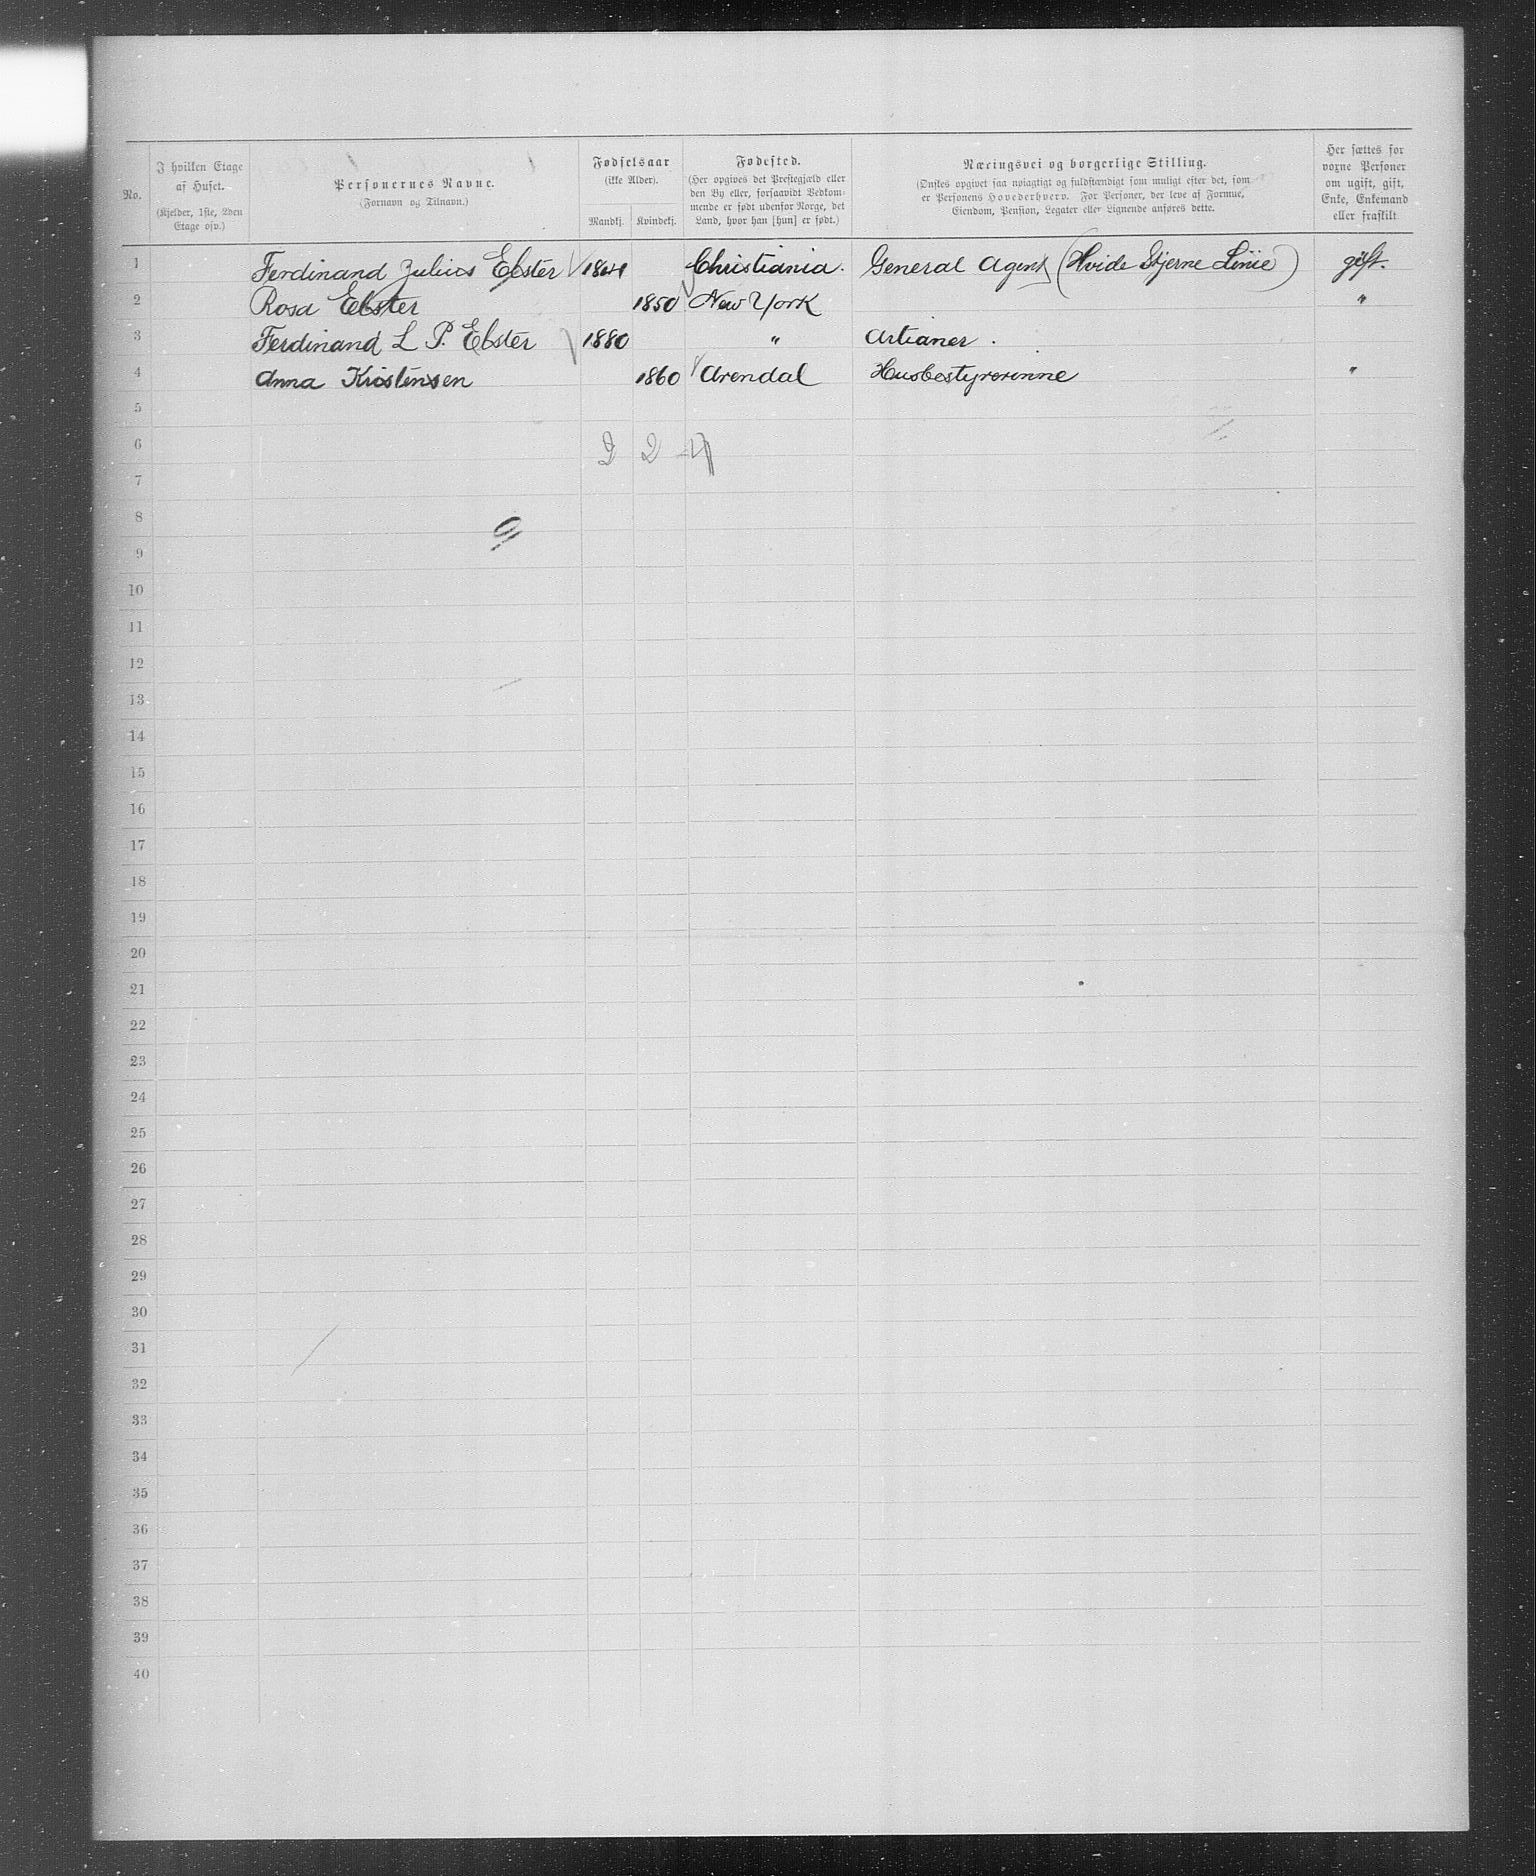 No.
I hvilken Etage af Huset.
(Kjelder, 1ste, 2den Etage osv.)
Personernes Navne.
(Fornavn og Tilnavn.)
Fødselsaar
(ikke Alder).
Mandkj. Kvindekj.
Fødested.
(Her opgives det Prestegjæld eller
den By eller, forsaavidt Vedkom-
mende er født udenfor Norge, det
Land, hvor han [hun] er født.)
Næringsvei og borgerlige Stilling.
(Ønskes opgivet saa nøiagtigt og fuldstændigt som muligt efter det, som
er Personens Hovederhverv. For Personer, der leve af Formue,
Eiendom, Pension, Legater eller Lignende anføres dette.
Her sættes for
voxne Personer
om ugift, gift,
Enke, Enkemand
eller fraskilt
1 Ferdinand Julius Ebster 1844 Christiania. General Agent (Hvide Stjerne Linie) gift.
2 Rosa Ebster 1850 New York "
3 Ferdinand L P. Ebster 1880 " Artianer.
4 Anna Kristensen 1860 Arendal Husbestyrerinne "
5
6 2 2 4
7
8
9
10
11
12
13
14
15
16
17
18
19
20
21
22
23
24
25
26
27
28
29
30
31
32
33
34
35
36
37
38
39
40